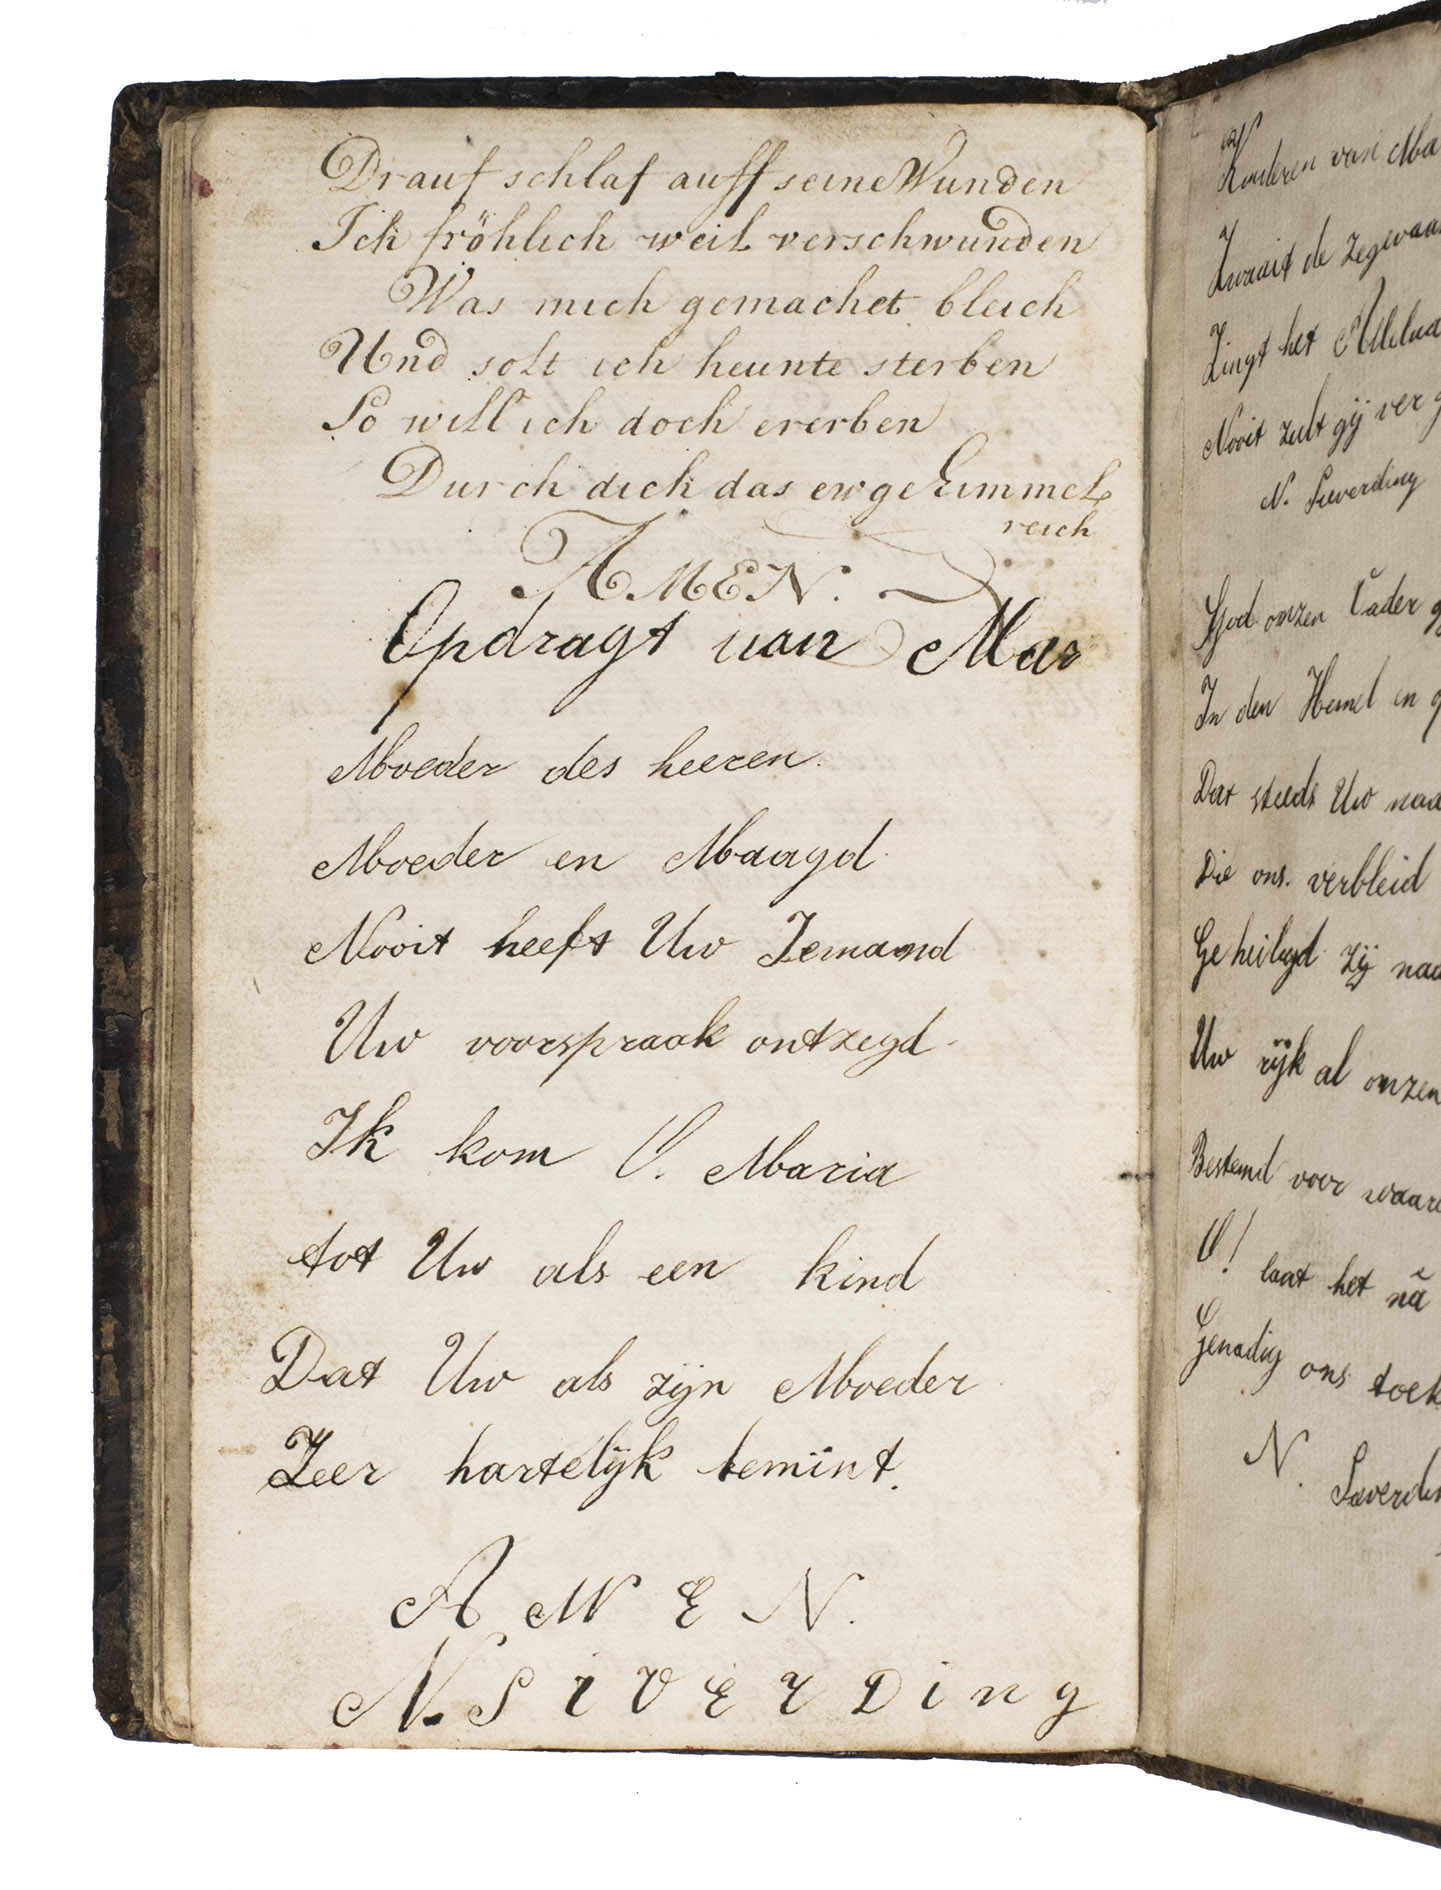 Drauf schlaf auff seine Wunden
Ich fröhlich weil verschwunden
Was mich gemachet bleich
Und solt ich heunte sterben
So will ich doch ererben
Durch dich das ewge Himmel
reich
AMEN.
Opdragt van Mar
Moeder des heeren.
Moeder en Maagd.
Nooit heeft Uw Iemand
Uw voorspraak ontzegd.
Ik kom O. Maria
tot Uw als een kind
Dat Uw als zijn Moeder
Zeer hartelijk bemint.
AMEN.
N. Siverding
Kinderen van Ma
Zwaait de zegevaa
Zingt het Allelua
Nooit zult gij ver g
N. Sieverding
God onzen Vader g
In den Hemel en g
Dat steeds Uw naa
Die ons. verbleid
Geheiligd zij naa
Uw rijk al onzen
Bestemd voor waare
O! laat het nã
Genadig ons toek
N.